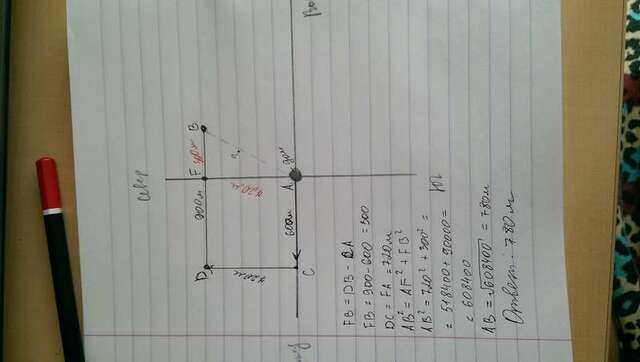 Север
D 900м F 300м B
720м 720м ?
600м A дом
C
Юг
FB = DB - CA
FB = 900-600 = 300
DC = FA = 720м
AB² = AF² + FB²
AB² = 720² + 300² =
= 518400 + 90000 =
= 608400
AB = √608400 = 780м
Ответ: 780 м.